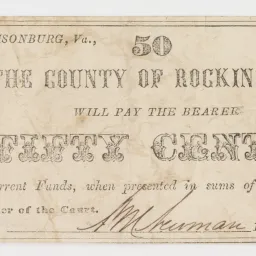 ISONBURG, Va.,
50
THE COUNTY OF ROCKIN
WILL PAY THE BEARER
FIFTY CENT
rrent Funds, when presented in sums of
er of the Court.